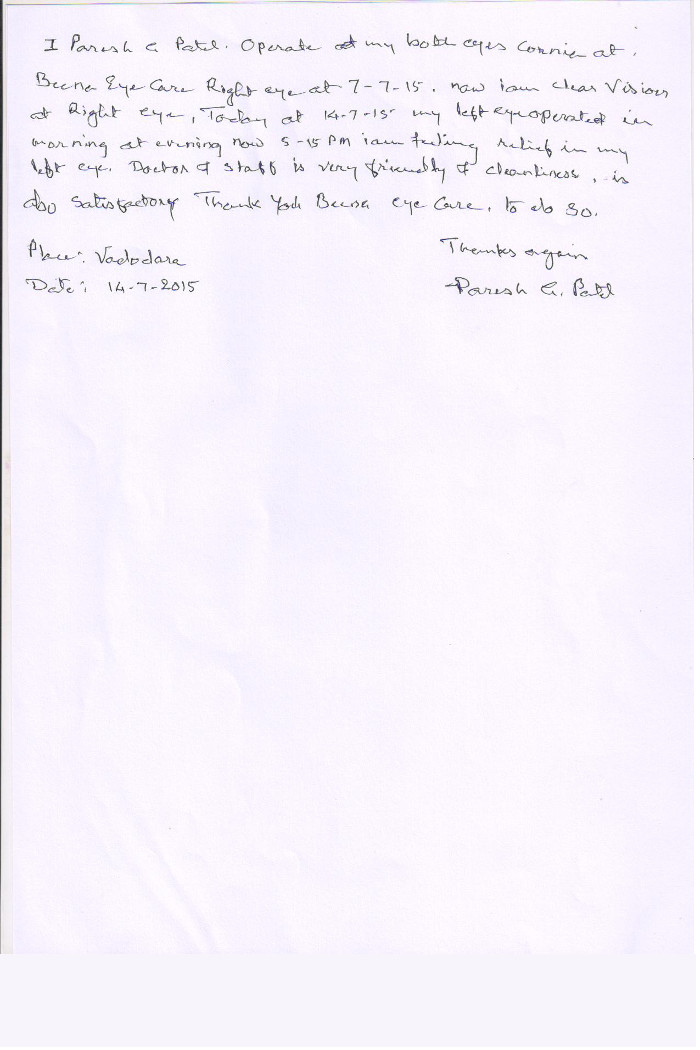 I Paresh G. Patel. Operate my both eyes at.
Beena Eye Care Right eye at 7-7-15. now iam clear Vision
at Right eye, Today at 14-7-15 my left eye operated in
morning at evening now 5-15 PM iam feeling relief in my
left eye. Doctor & staff is very friendly & cleanliness, is
also Satisfactory Thank You Beena eye Care, to do so.
Place: Vadodara
Thanks again
Date: 14-7-2015
Paresh G. Patel